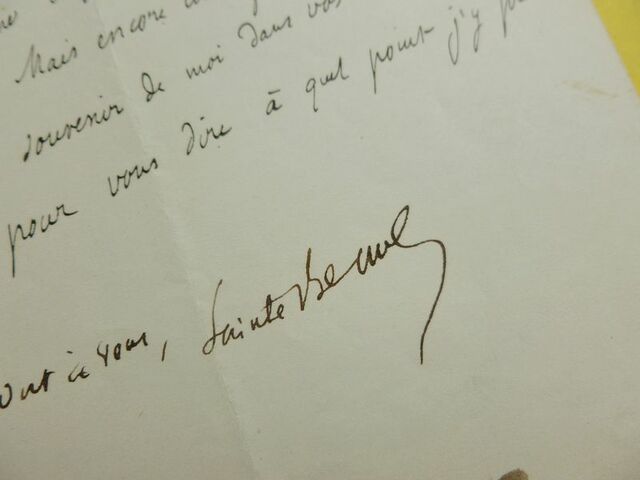 Mais encore
souvenir de moi dans vos
pour vous dire à quel point j'y
tout à vous, Sainte-Beuve